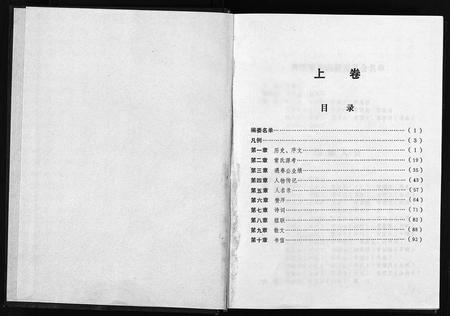 上 卷
目 录
编委名单……………………（1）
凡例……………………（3）
第一章 历史、序文……………………（1）
第二章 氏源考……………………（19）
第三章 公业绩……………………（35）
第四章 人物传记……………………（43）
第五章 人名录……………………（57）
第六章 赞序……………………（64）
第七章 诗词……………………（71）
第八章 楹联……………………（82）
第九章 散文……………………（88）
第十章 书信……………………（92）